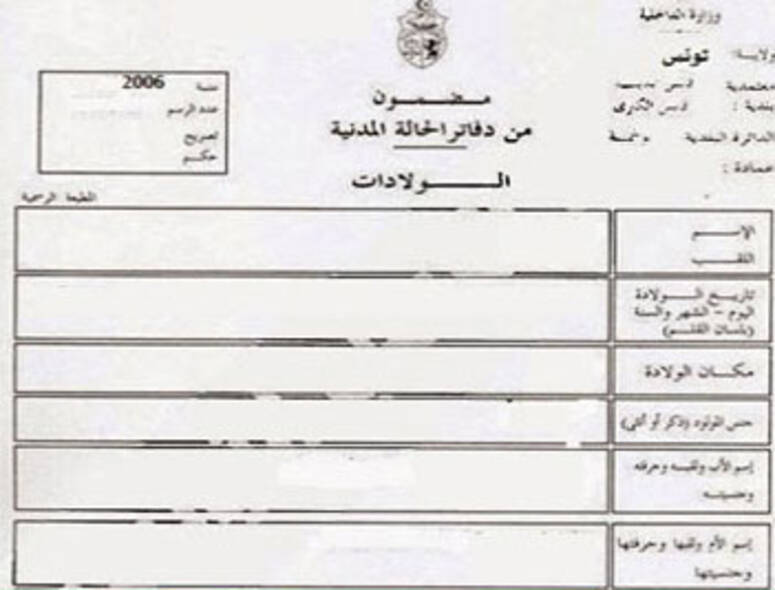 وزارة الداخلية
ولاية: تونس
معتمدية
بلدية :
الدائرة البلدية
عمادة :
سنة 2006
عدد الرسم
تصريح
حكم
مضمون
من دفاتر الحالة المدنية
الولادات
المطبعة الرسمية
الإسم
اللقب
تاريخ الولادة
اليوم - الشهر والسنة
(بلسان القلم)
مكان الولادة
جنس المولود (ذكر أو أنثى)
إسم الأب ولقبه وحرفته
وجنسيته
إسم الأم ولقبها وحرفتها
وجنسيتها